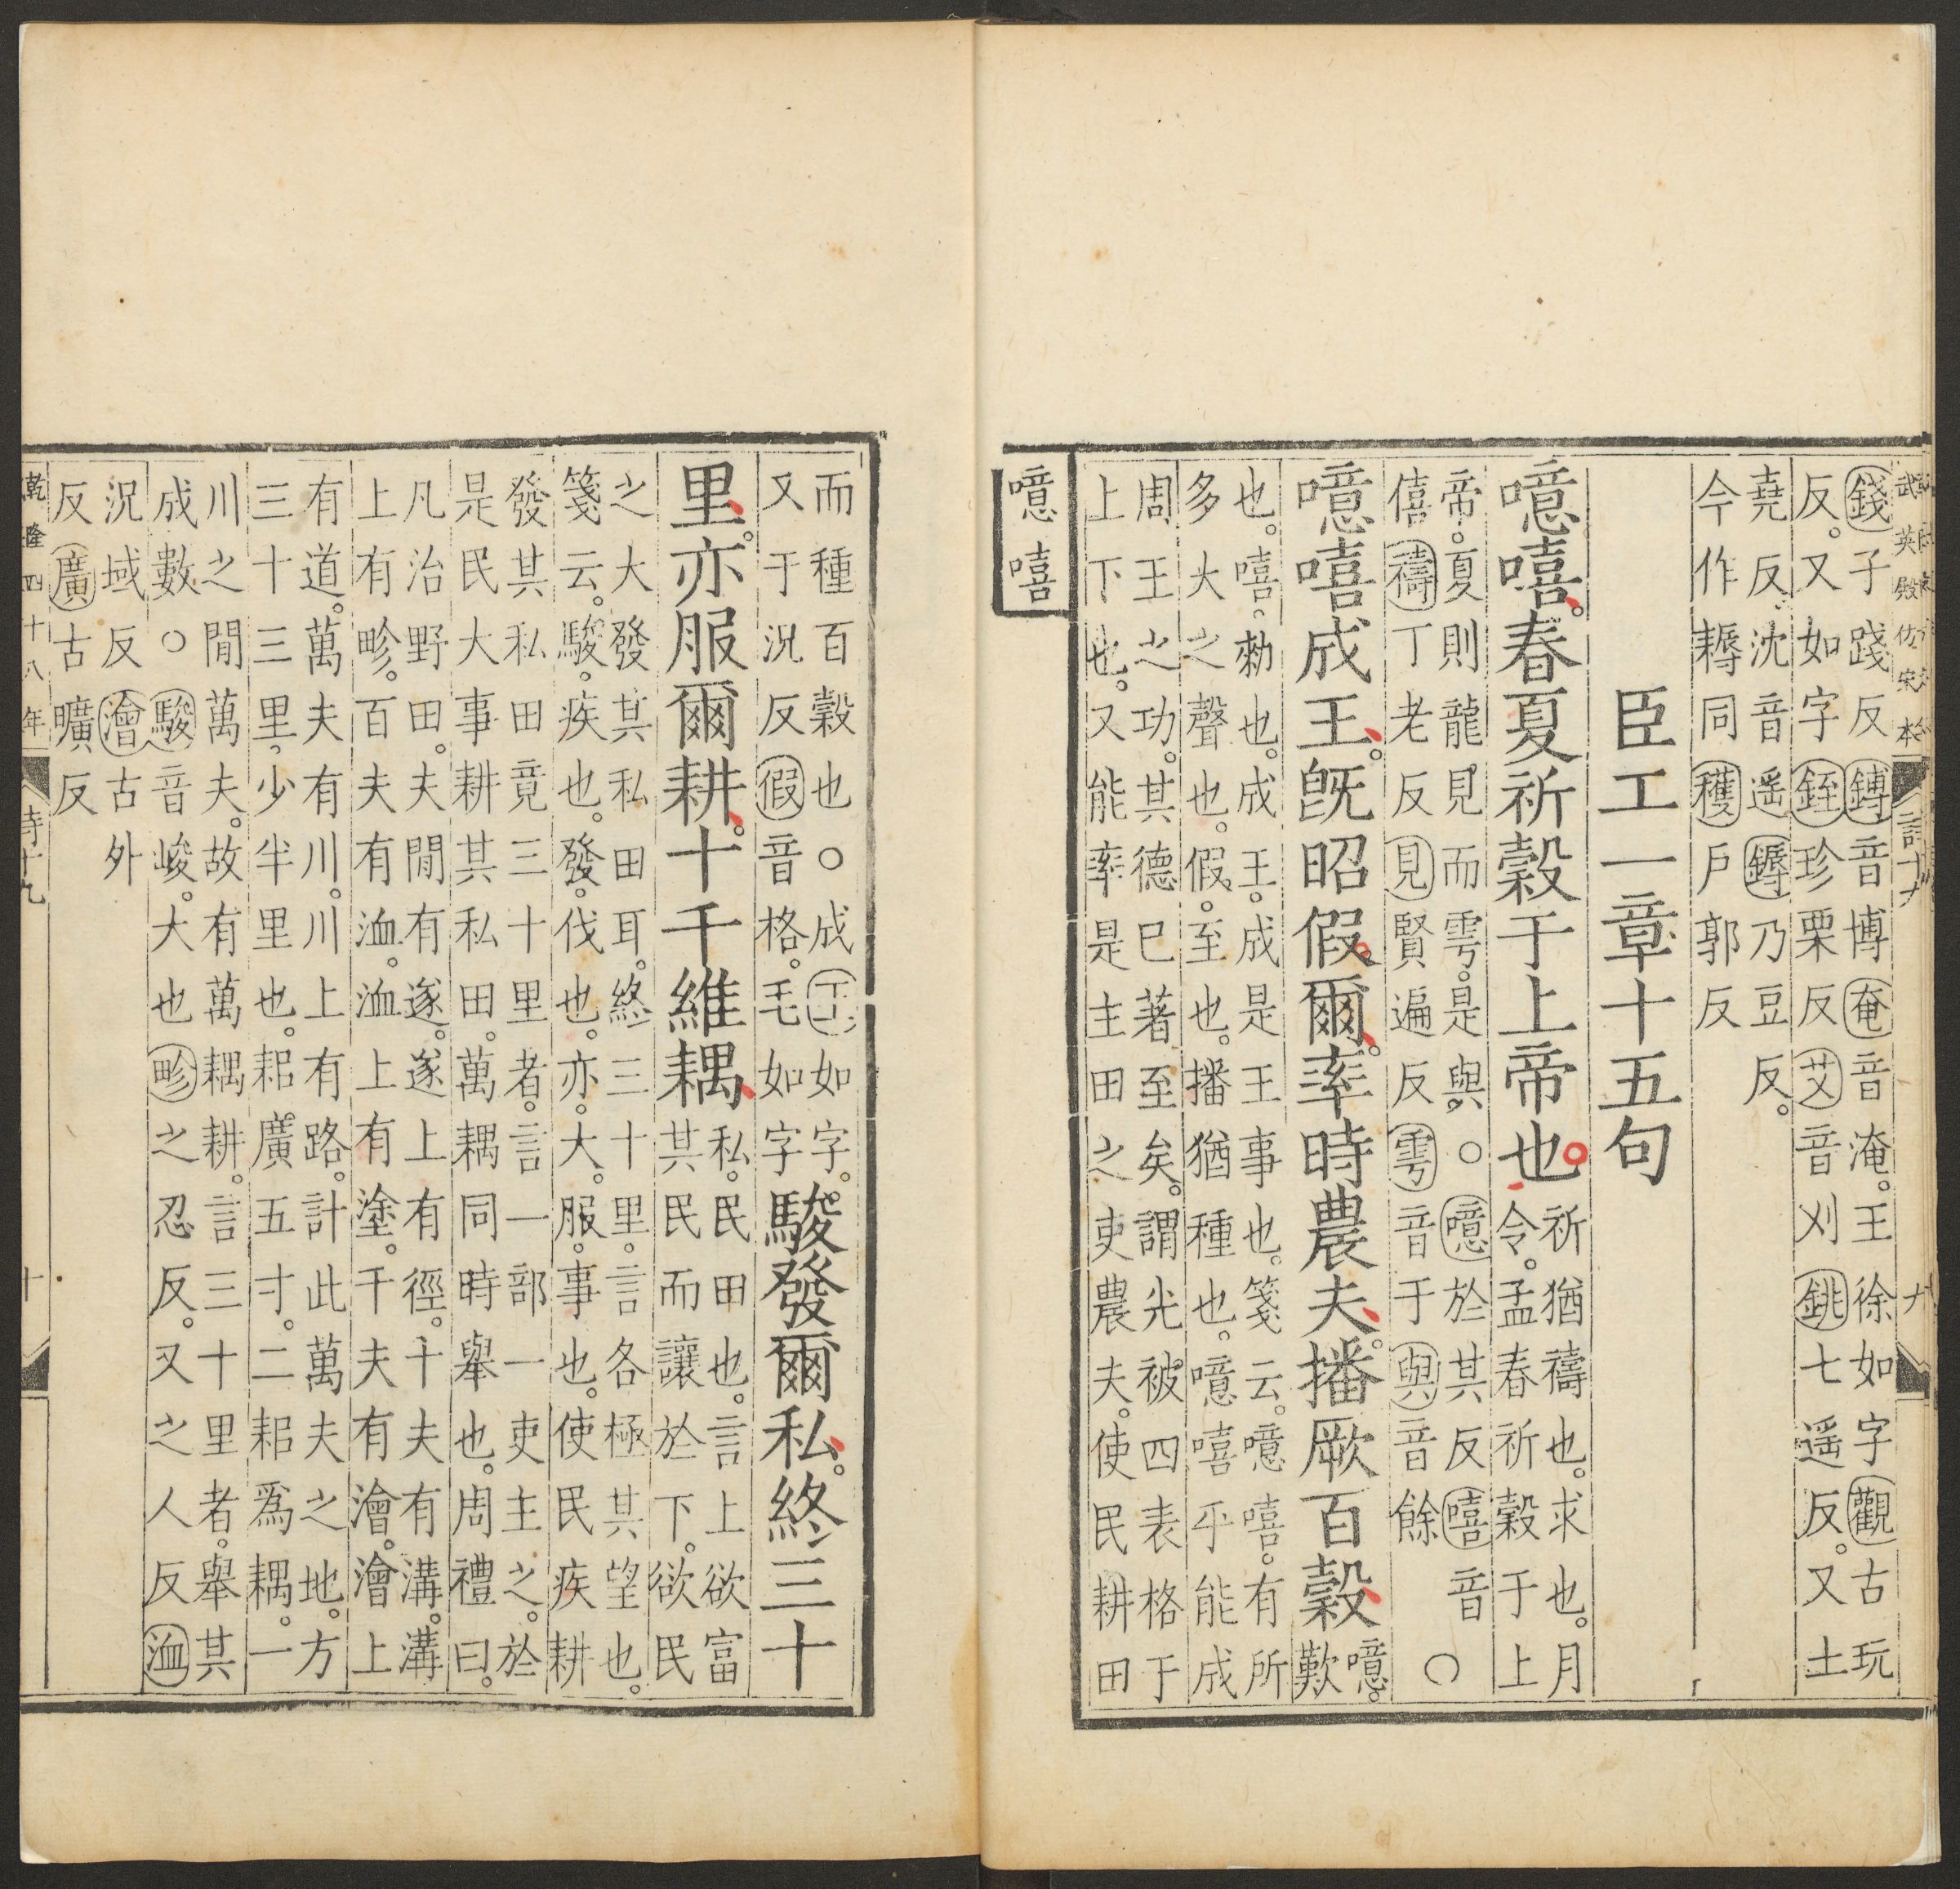 武英殿仿宋本
錢子踐反鎛音博奄音淹。王徐如字觀古玩
反。又如字銍珍栗反艾音刈銚七遥反。又土
堯反。沈音遥鎒乃豆反。
今作耨同穫戶郭反
臣工一章十五句
噫嘻。春夏祈穀于上帝也
祈猶禱也。求也。月
令。孟春祈穀于上
帝。夏則龍見而雩。是與。○噫於其反嘻音
僖禱丁老反見賢遍反雩音于與音餘
○
噫嘻成王。旣昭假爾。率時農夫。播厥百穀
噫。
歎
也。嘻。勑也。成王。成是王事也。箋云。噫嘻。有所
多大之聲也。假。至也。播猶種也。噫嘻乎能成
周王之功。其德已著至矣。謂光被四表格于
上下也。又能率是主田之吏農夫。使民耕田
噫嘻
而種百穀也○成王如字。
又于況反假音格。毛如字
駿發爾私。終三十
里。亦服爾耕。十千維耦
私。民田也。言上欲富
其民而讓於下。欲民
之大發其私田耳。終三十里。言各極其望也。
箋云。駿。疾也。發。伐也。亦。大。服。事也。使民疾耕
發其私田竟三十里者。言一部一吏主之。於
是民大事耕其私田。萬耦同時舉也。周禮曰。
凡治野田。夫閒有遂。遂上有徑。十夫有溝。溝
上有畛。百夫有洫。洫上有塗。千夫有澮。澮上
有道。萬夫有川。川上有路。計此萬夫之地。方
三十三里少半里也。耜廣五寸。二耜爲耦。一
川之閒萬夫。故有萬耦耕。言三十里者。舉其
成數。○駿音峻。大也畛之忍反。又之人反洫
況域反澮古外
反廣古曠反
乾隆四十八年
詩十九
十